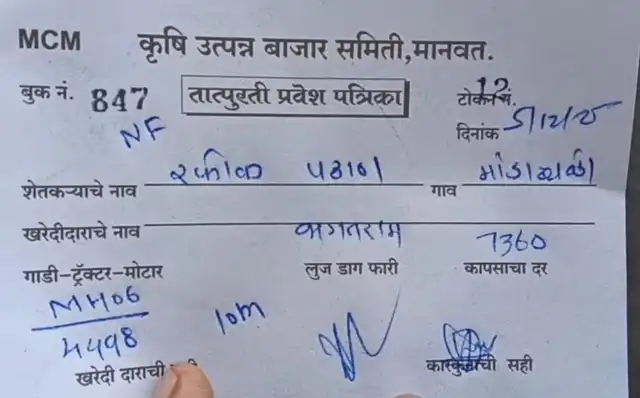 MCM कृषि उत्पन्न बाजार समिती,मानवत.
बुक नं. 847 तात्पुरती प्रवेश पत्रिका टोकन नं. 12
NF दिनांक 5/12/25
शेतकऱ्याचे नाव रफीक पठाण गाव
खरेदीदाराचे नाव भगतराम 7360
गाडी-ट्रॅक्टर-मोटार लुज डाग फारी कापसाचा दर
MH06
4498 10m
खरेदी दाराची कारकुनाची सही